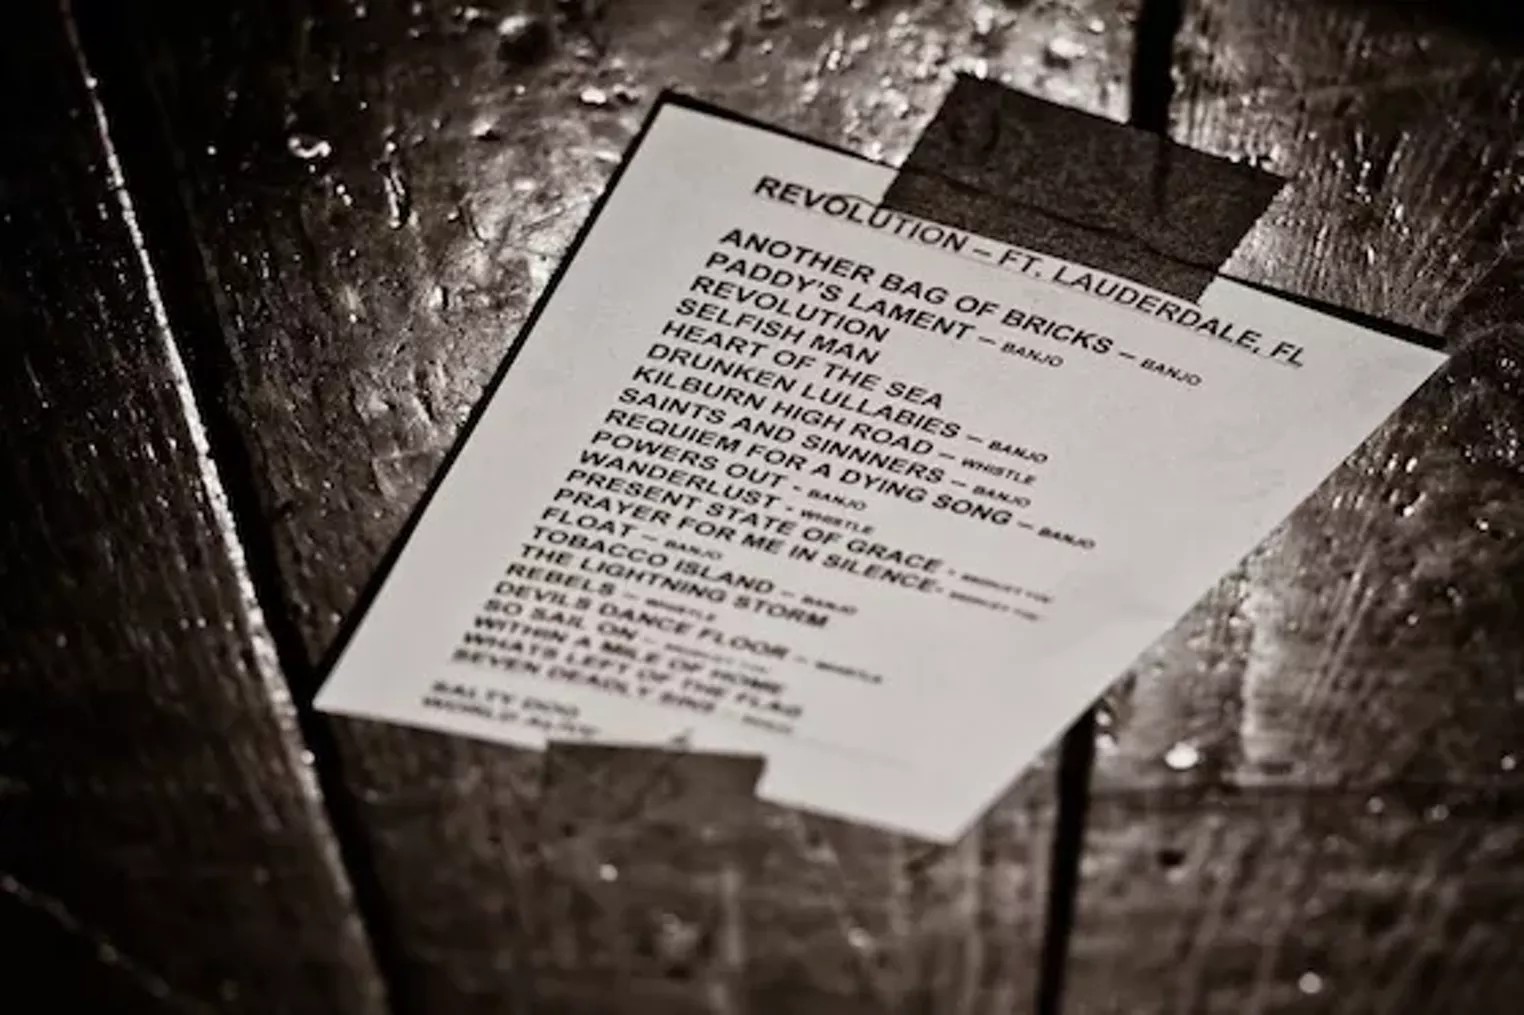 REVOLUTION – FT. LAUDERDALE, FL
ANOTHER BAG OF BRICKS – BANJO
PADDY'S LAMENT – BANJO
REVOLUTION
SELFISH MAN
HEART OF THE SEA
DRUNKEN LULLABIES – BANJO
KILBURN HIGH ROAD – WHISTLE
SAINTS AND SINNNERS – BANJO
REQUIEM FOR A DYING SONG – BANJO
POWERS OUT - BANJO
WANDERLUST - WHISTLE
PRESENT STATE OF GRACE -
PRAYER FOR ME IN SILENCE-
FLOAT – BANJO
TOBACCO ISLAND – BANJO
THE LIGHTNING STORM
REBELS – WHISTLE
DEVILS DANCE FLOOR – WHISTLE
SO SAIL ON –
WITHIN A MILE OF HOME
WHATS LEFT OF THE FLAG
SEVEN DEADLY SINS –
SALTY DOG
WORLD ALIVE